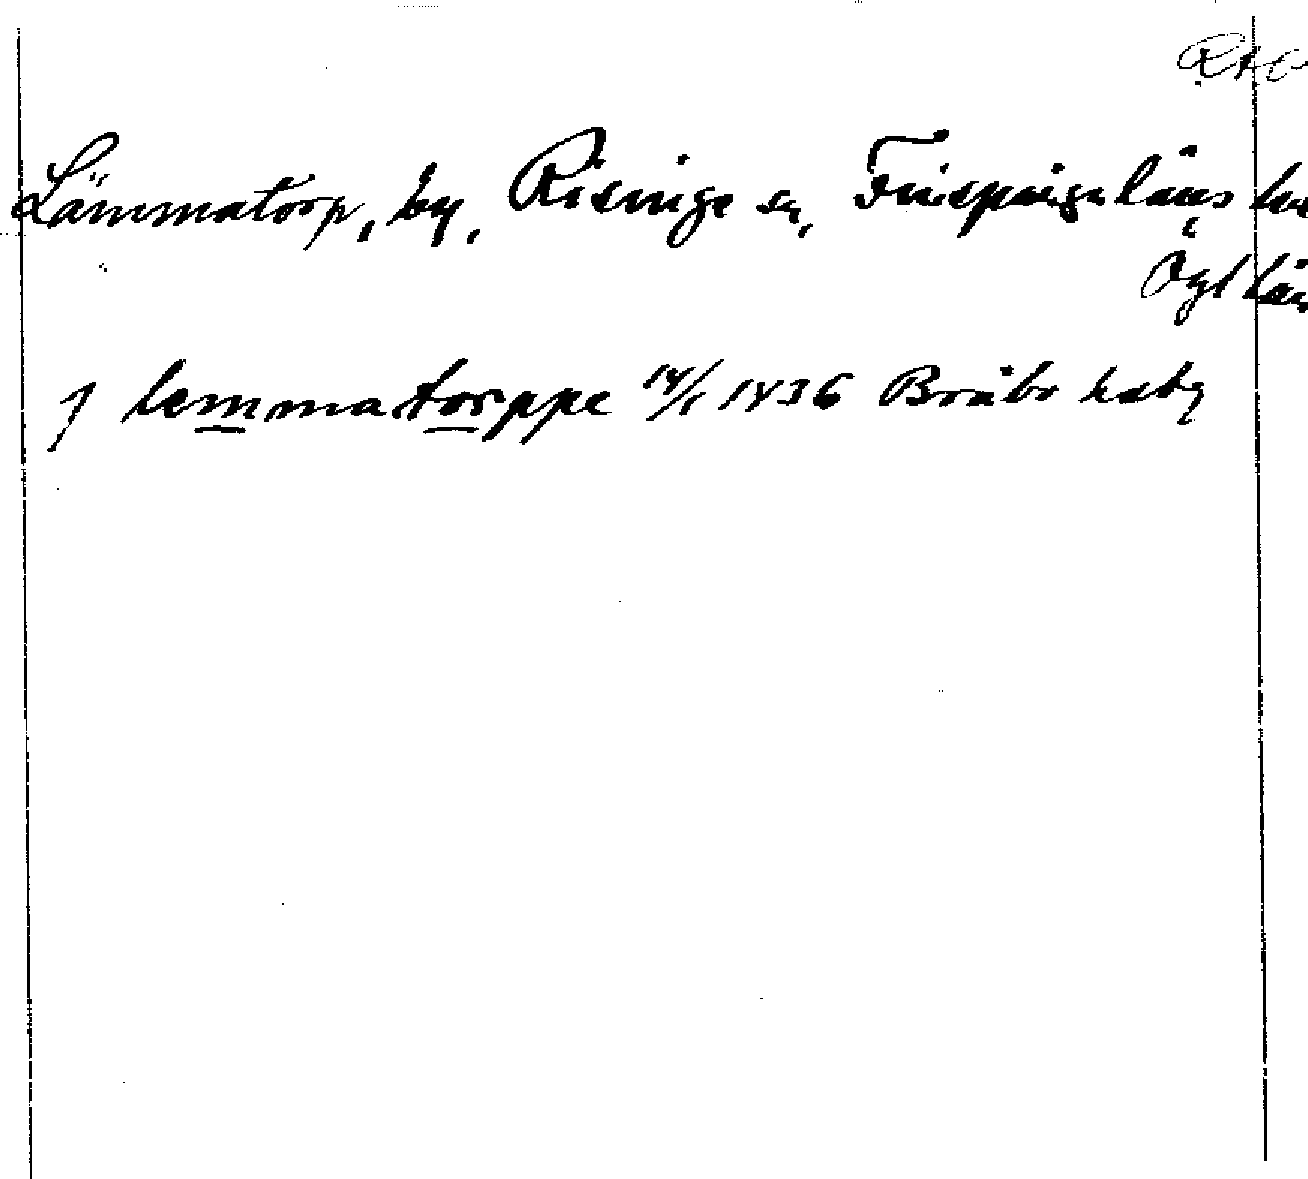 RAC
Lämmatorp, by, Risinge sn, Finspångs läns
Ögl län
J lemmatorppe 14/1 1436 Bråbo hab